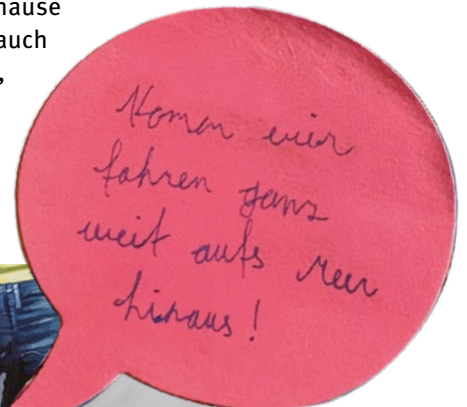 hause
auch
,
fahren ganz
weit aufs Meer
hinaus!